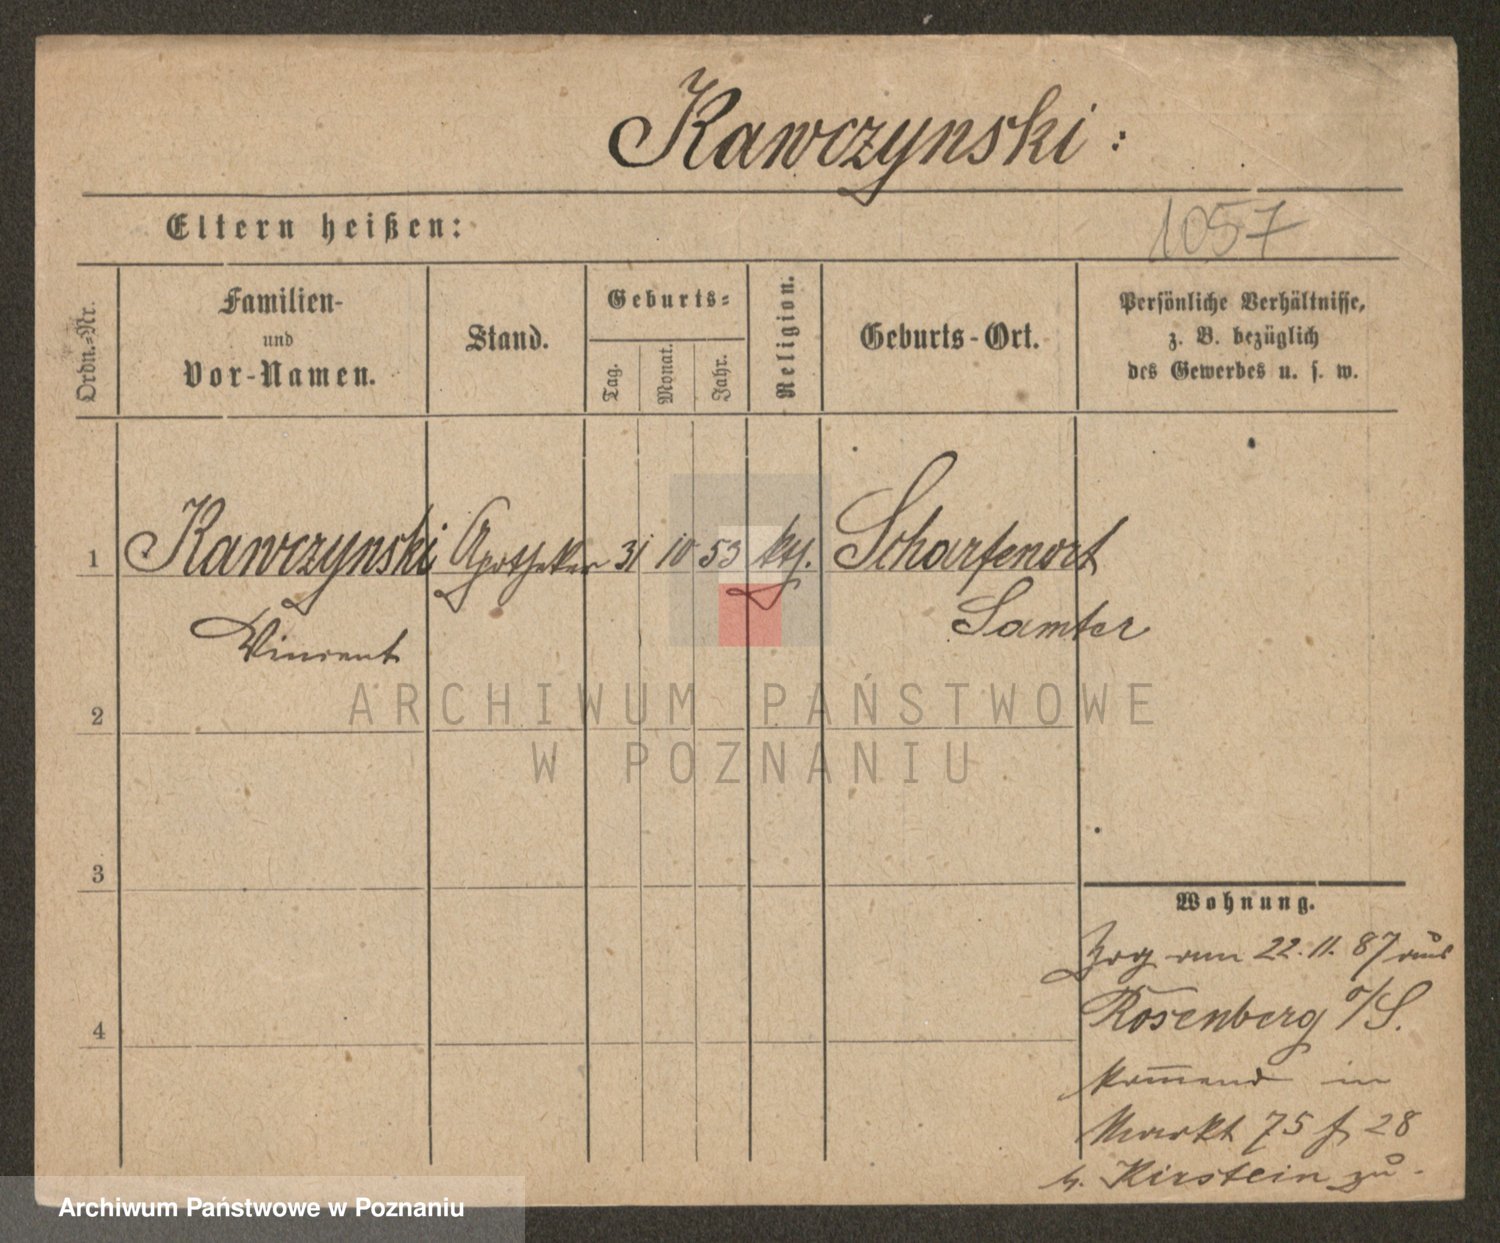 Kawczynski:
Eltern heißen:
1057
Ordn.-Nr.
Familien-
und
Vor-Namen.
Stand.
Geburts-
Tag.
Monat.
Jahr.
Religion.
Geburts-Ort.
Persönliche Verhältnisse,
z. B. bezüglich
des Gewerbes u. s. w.
1 Kawczynski Apotheker 31 10 53 kth. Scharfenort
Samter
Vincent
ARCHIWUM PAŃSTWOWE
W POZNANIU
2
3
4
Wohnung.
Zog am 22.11.87 aus
Rosenberg O/S.
kom̅end in
Markt 75 f 28
b. Kirstein zu.
Archiwum Państwowe w Poznaniu